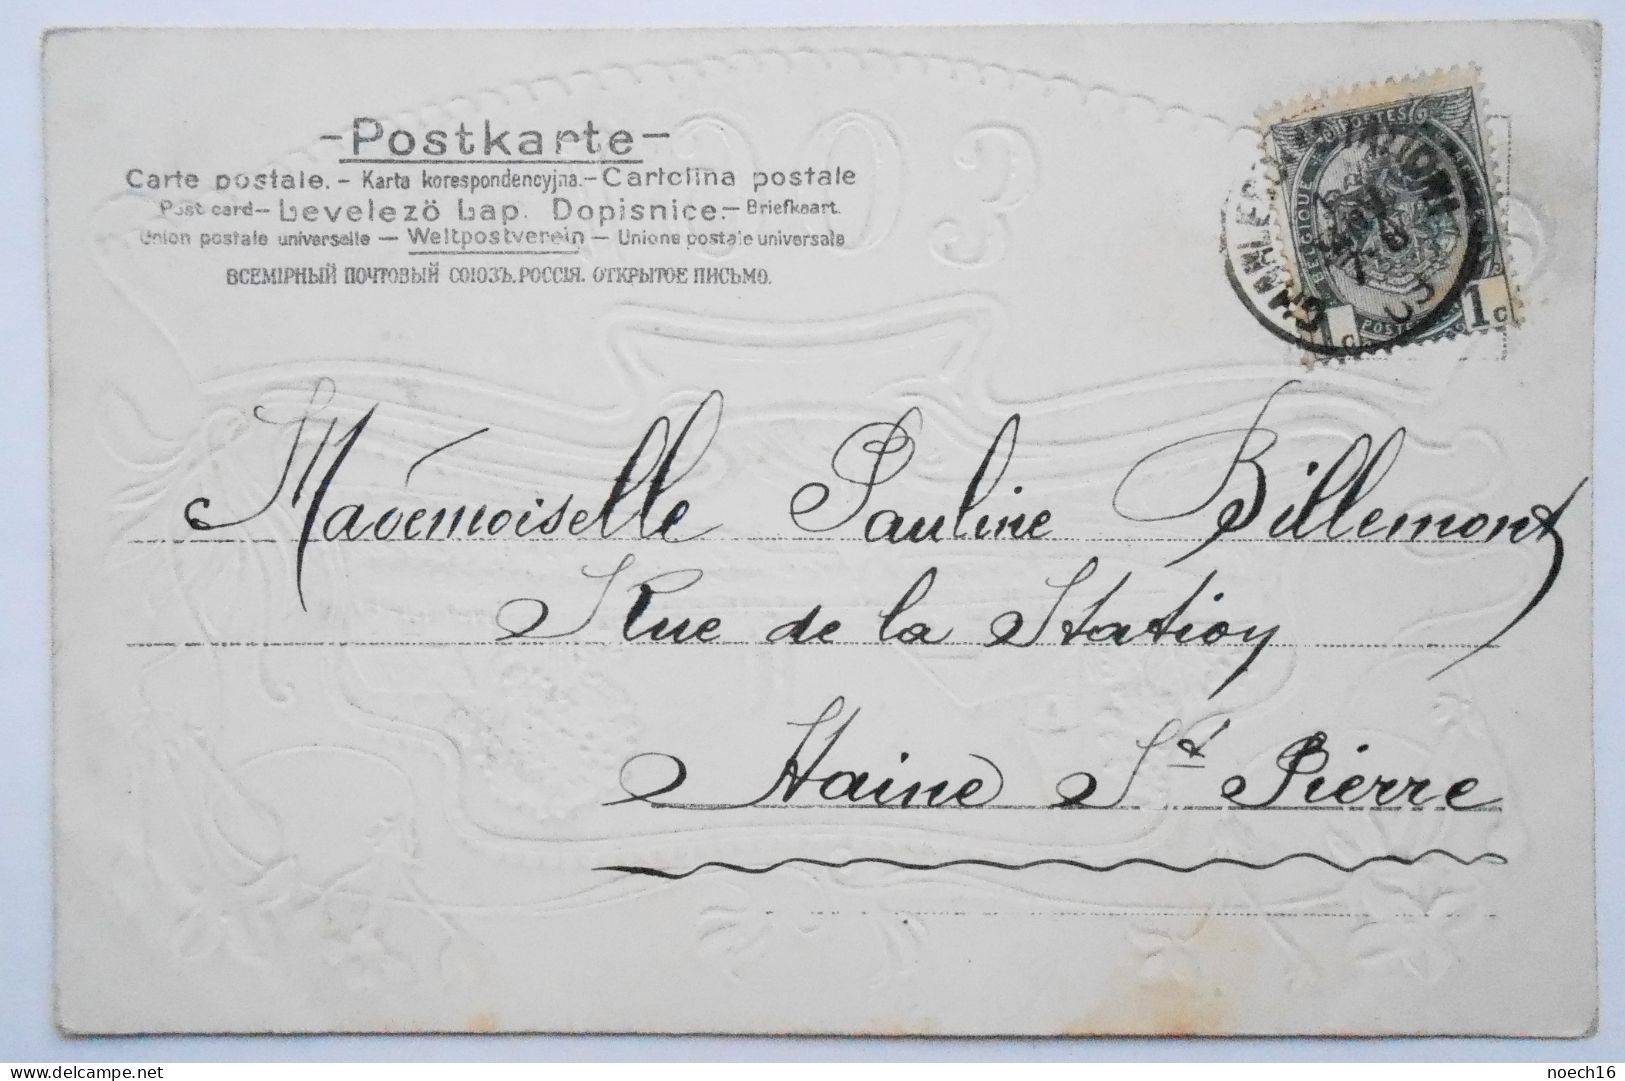 -Postkarte-
Carte postale. - Karta korespondencyjna. - Cartolina postale
Post card - Levelezö Lap. Dopisnice. - Briefkaart.
Union postale universelle - Weltpostverein - Unione postale universale
ВСЕМІРНЫЙ ПОЧТОВЫЙ СОЮЗЪ. РОССІЯ. ОТКРЫТОЕ ПИСЬМО.
BELGIQUE
POSTE
1c 1c
(STATION)
Mademoiselle Pauline Billemont
Rue de la Station
Haine St Pierre
noech16